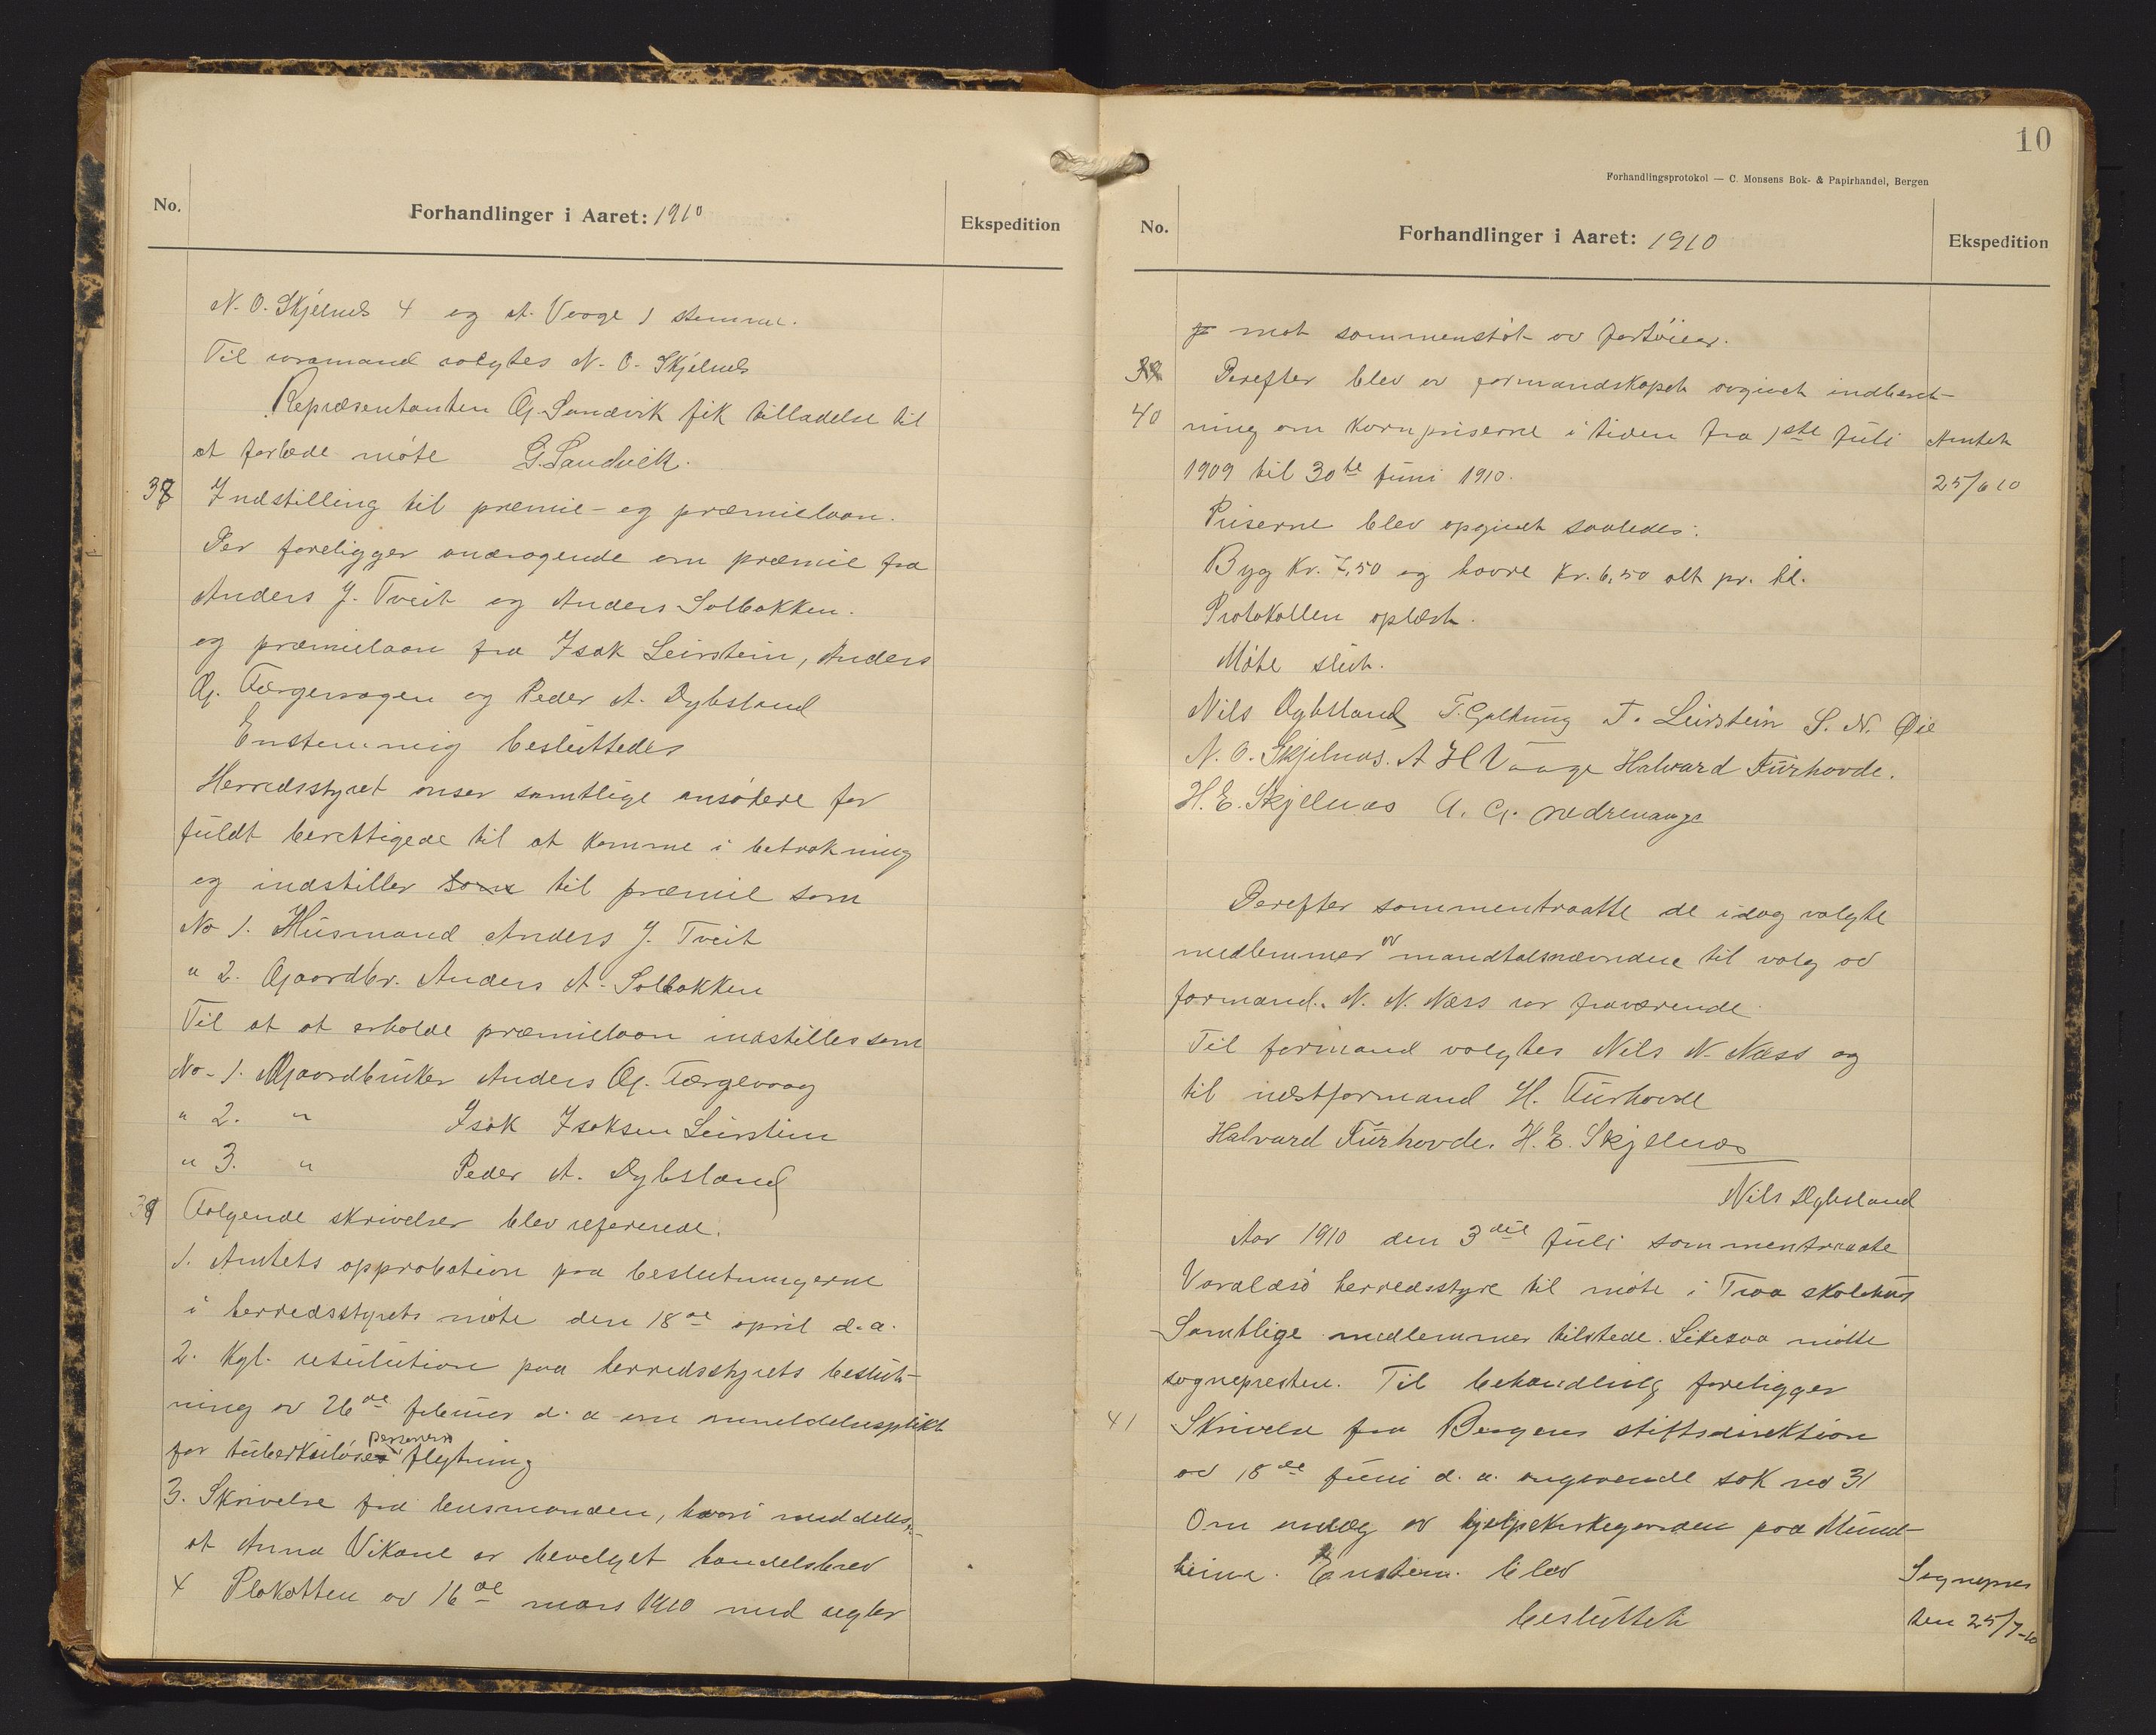 No.
Forhandlinger i Aaret: 1910
Ekspedition
N. O. Skjelnes 4 og A. Vaage 1 stemme.
Til varamand valgtes N. O. Skjelnes
Repræsentanten G. Sandvik fik tilladelse til
at forlade møte G. Sandvik.
38 Indstilling til præmie- og præmielaan.
Der foreligger andragende om præmie fra
Anders J. Tveit og Anders Solbakken.
og præmielaan fra Isak Leirstein, Anders
G. Færgevaagen og Peder A. Dybsland
Enstemmig besluttedes
Herredsstyret anser samtlige ansøkere for
fuldt berettigede til at komme i betrakning
og indstiller som til præmie som
No 1. Husmand Anders J. Tveit
" 2. Gaardbr. Anders A. Solbakken
Til at at erholde præmielaan indstilles som
No. 1. Gaardbruker Anders G. Færgevaag
" 2. " Isak Isaksen Leirstein
" 3. " Peder A. Dybsland
39 Følgende skrivelser blev referende.
1. Amtets approbation paa beslutningerne
i herredsstyrets møte den 18de april d.a.
2. Kgl. resulution paa herredsstyrets beslut-
ning av 26de februar d. a om anmeldelsesplikt
for tuberkuløses personers flytning
3. Skrivelse fra lensmanden, hvori meddeles,
at Anna Vikane er bevelget handelsbrev
4 Plakatten av 16de mars 1910 med regler
10
Forhandlingsprotokol — C. Monsens Bok- & Papirhandel, Bergen
No.
Forhandlinger i Aaret: 1910
Ekspedition
mot sammenstøt av fartøier.
Derefter blev av formandskapet avgivet indberet-
40 ning om kornpriserne i tiden fra 1ste juli Amtet
1909 til 30te juni 1910. 25/6 10
Priserne blev opgivet saaledes:
Byg kr. 7,50 og havre kr. 6,50 alt pr. hl.
Protokollen oplæst.
Møte slut.
Nils Dybsland T. Galtung T. Leirstein S. N. Øie
N. O. Skjelnæs. A H Vaage Halvard Furhovde.
H. E. Skjelnæs A. G. Nedrevaage
Derefter sammentraatte de idag valgte
medlemmer av mandtalsnævndene til valg av
formand. N. N. Næss var fraværende
Til formand valgtes Nils N. Næss og
til næstformand H. Furhovde
Halvard Furhovde. H. E. Skjelnæs
Nils Dybsland
Aar 1910 den 3die juli sammentraate
Varaldsø herredsstyre til møte i Traa skolehus
Samtlige medlemmer tilstede. Likesaa møtte
sognepresten. Til behandling foreligger
41 Skrivelse fra Bergens stiftsdirektion
av 18de juni d. a. angaaende sak no 31
Om anlæg av hjelpekirkegaarden paa Mund-
heim. Enstem. blev Sognepres
besluttet ten 25/7-10